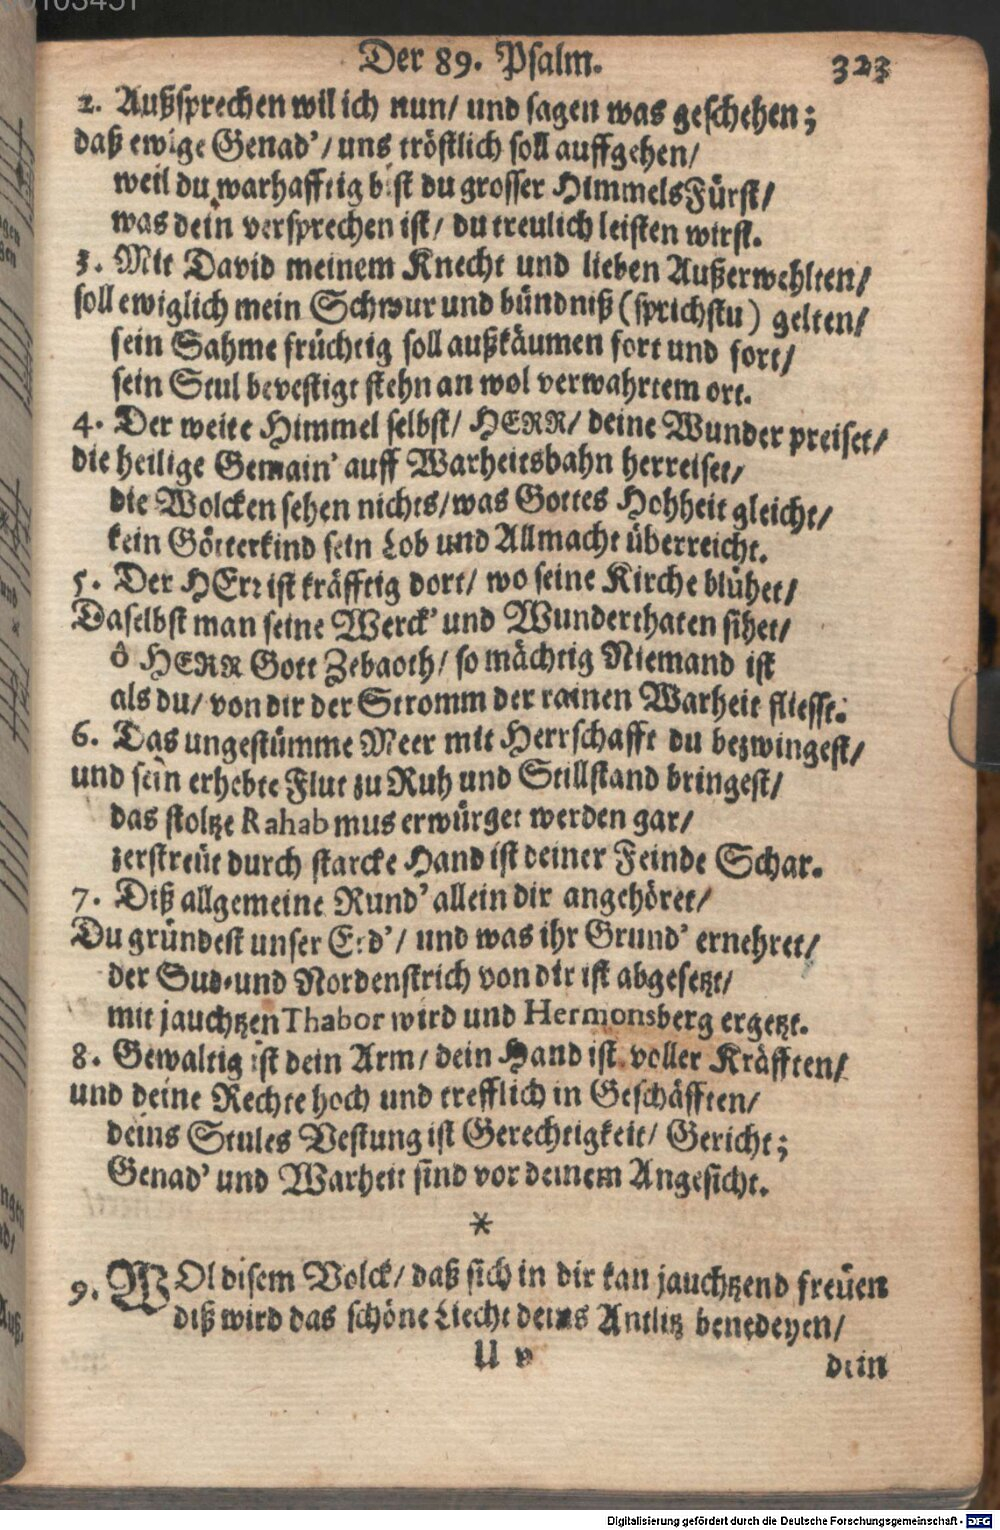 Der 89. Psalm. 323
2. Außsprechen wil ich nun/ und sagen was geschehen;
daß ewige Genad'/ uns tröstlich soll auffgehen/
weil du warhafftig bist du grosser HimmelsFürst/
was dein versprechen ist/ du treulich leisten wirst.
3. Mit David meinem Knecht und lieben Außerwehlten/
soll ewiglich mein Schwur und bündniß (sprichstu) gelten/
sein Sahme früchtig soll außkäumen fort und fort/
sein Stul bevestigt stehn an wol verwahrtem ort.
4. Der weite Himmel selbst/ HERR/ deine Wunder preiset/
die heilige Gemain' auff Warheitsbahn herreiset/
die Wolcken sehen nichts/ was Gottes Hohheit gleicht/
kein Götterkind sein Lob und Allmacht überreicht.
5. Der HErr ist kräfftig dort/ wo seine Kirche blühet/
Daselbst man seine Werck' und Wunderthaten sihet/
ô HERR Gott Zebaoth/ so mächtig Niemand ist
als du/ von dir der Stromm der rainen Warheit fliesst.
6. Das ungestümme Meer mit Herrschafft du bezwingest/
und sein erhebte Flut zu Ruh und Stillstand bringest/
das stoltze Rahab mus erwürget werden gar/
zerstreüt durch starcke Hand ist deiner Feinde Schar.
7. Diß allgemeine Rund' allein dir angehöret/
Du gründest unser Erd'/ und was ihr Grund' ernehret/
der Sud-und Nordenstrich von dir ist abgesetzt/
mit jauchtzen Thabor wird und Hermonsberg ergetzt.
8. Gewaltig ist dein Arm/ dein Hand ist voller Kräfften/
und deine Rechte hoch und trefflich in Geschäfften/
deins Stules Vestung ist Gerechtigkeit/ Gericht;
Genad' und Warheit sind vor deinem Angesicht.
*
9. WOl disem Volck/ daß sich in dir kan jauchtzend freüen
diß wird das schöne Liecht deins Antlitz benedeyen/
U v dein
Digitalisierung gefördert durch die Deutsche Forschungsgemeinschaft - DFG